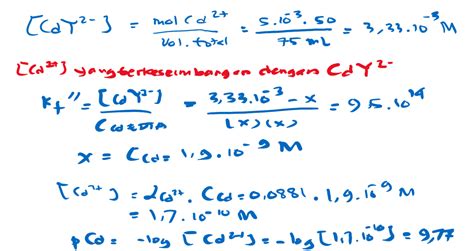 [CdY²⁻] = mol Cd²⁺ / Vol. total = 5.10⁻³. 50 / 75 mL = 3,33.10⁻³ M
[Cd²⁺] yang berkesetimbangan dengan CdY²⁻
Kf'' = [CdY²⁻] / C Cd EDTA = 3,33.10⁻³ - x / (x)(x) = 9,5.10¹⁴
x = C Cd = 1,9.10⁻⁹ M
[Cd²⁺] = αCd²⁺. C Cd = 0,0881. 1,9.10⁻⁹ M
= 1,7.10⁻¹⁰ M
pCd = -log [Cd²⁺] = -log [1,7.10⁻¹⁰] = 9,77